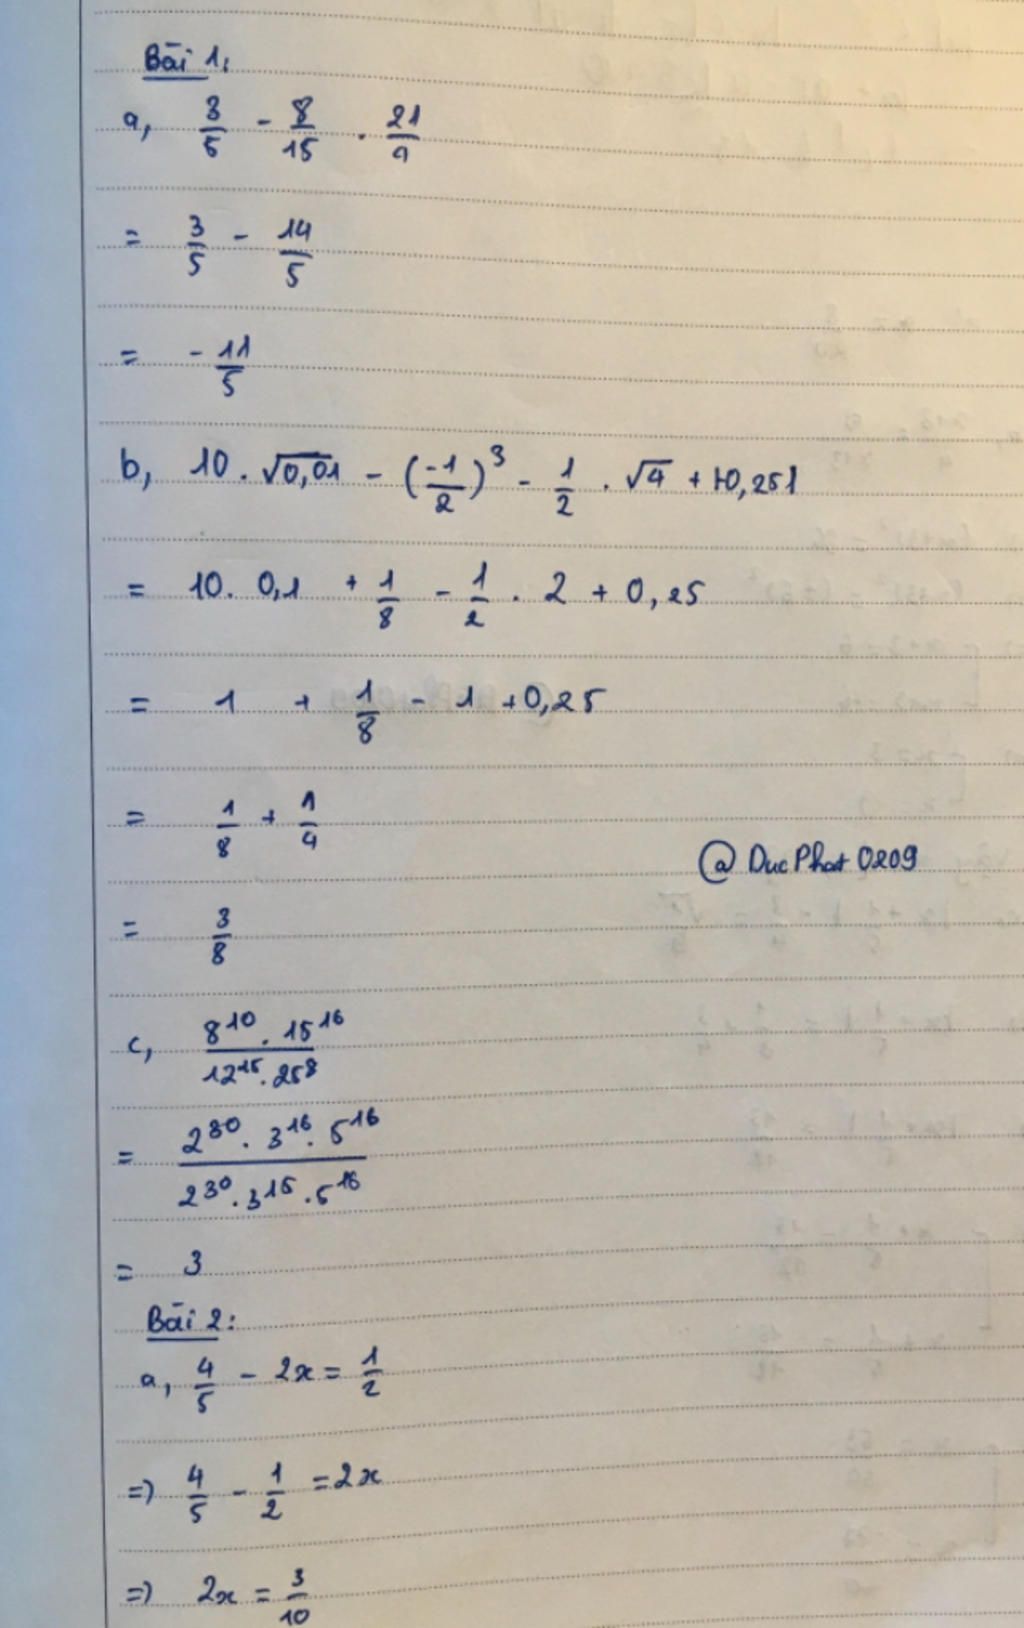 Bài 1:
a, 3/5 - 8/15 . 21/4
= 3/5 - 14/5
= -11/5
b, 10 . √0,01 - (-1/2)³ - 1/2 . √4 + |-0,25|
= 10. 0,1 + 1/8 - 1/2 . 2 + 0,25
= 1 + 1/8 - 1 + 0,25
= 1/8 + 1/4
@DucPhat0209
= 3/8
c, 8¹⁰ . 15¹⁶ / 12¹⁵ . 25⁸
= 2³⁰ . 3¹⁶ . 5¹⁶ / 2³⁰ . 3¹⁵ . 5¹⁶
= 3
Bài 2:
a, 4/5 - 2x = 1/2
=> 4/5 - 1/2 = 2x
=> 2x = 3/10